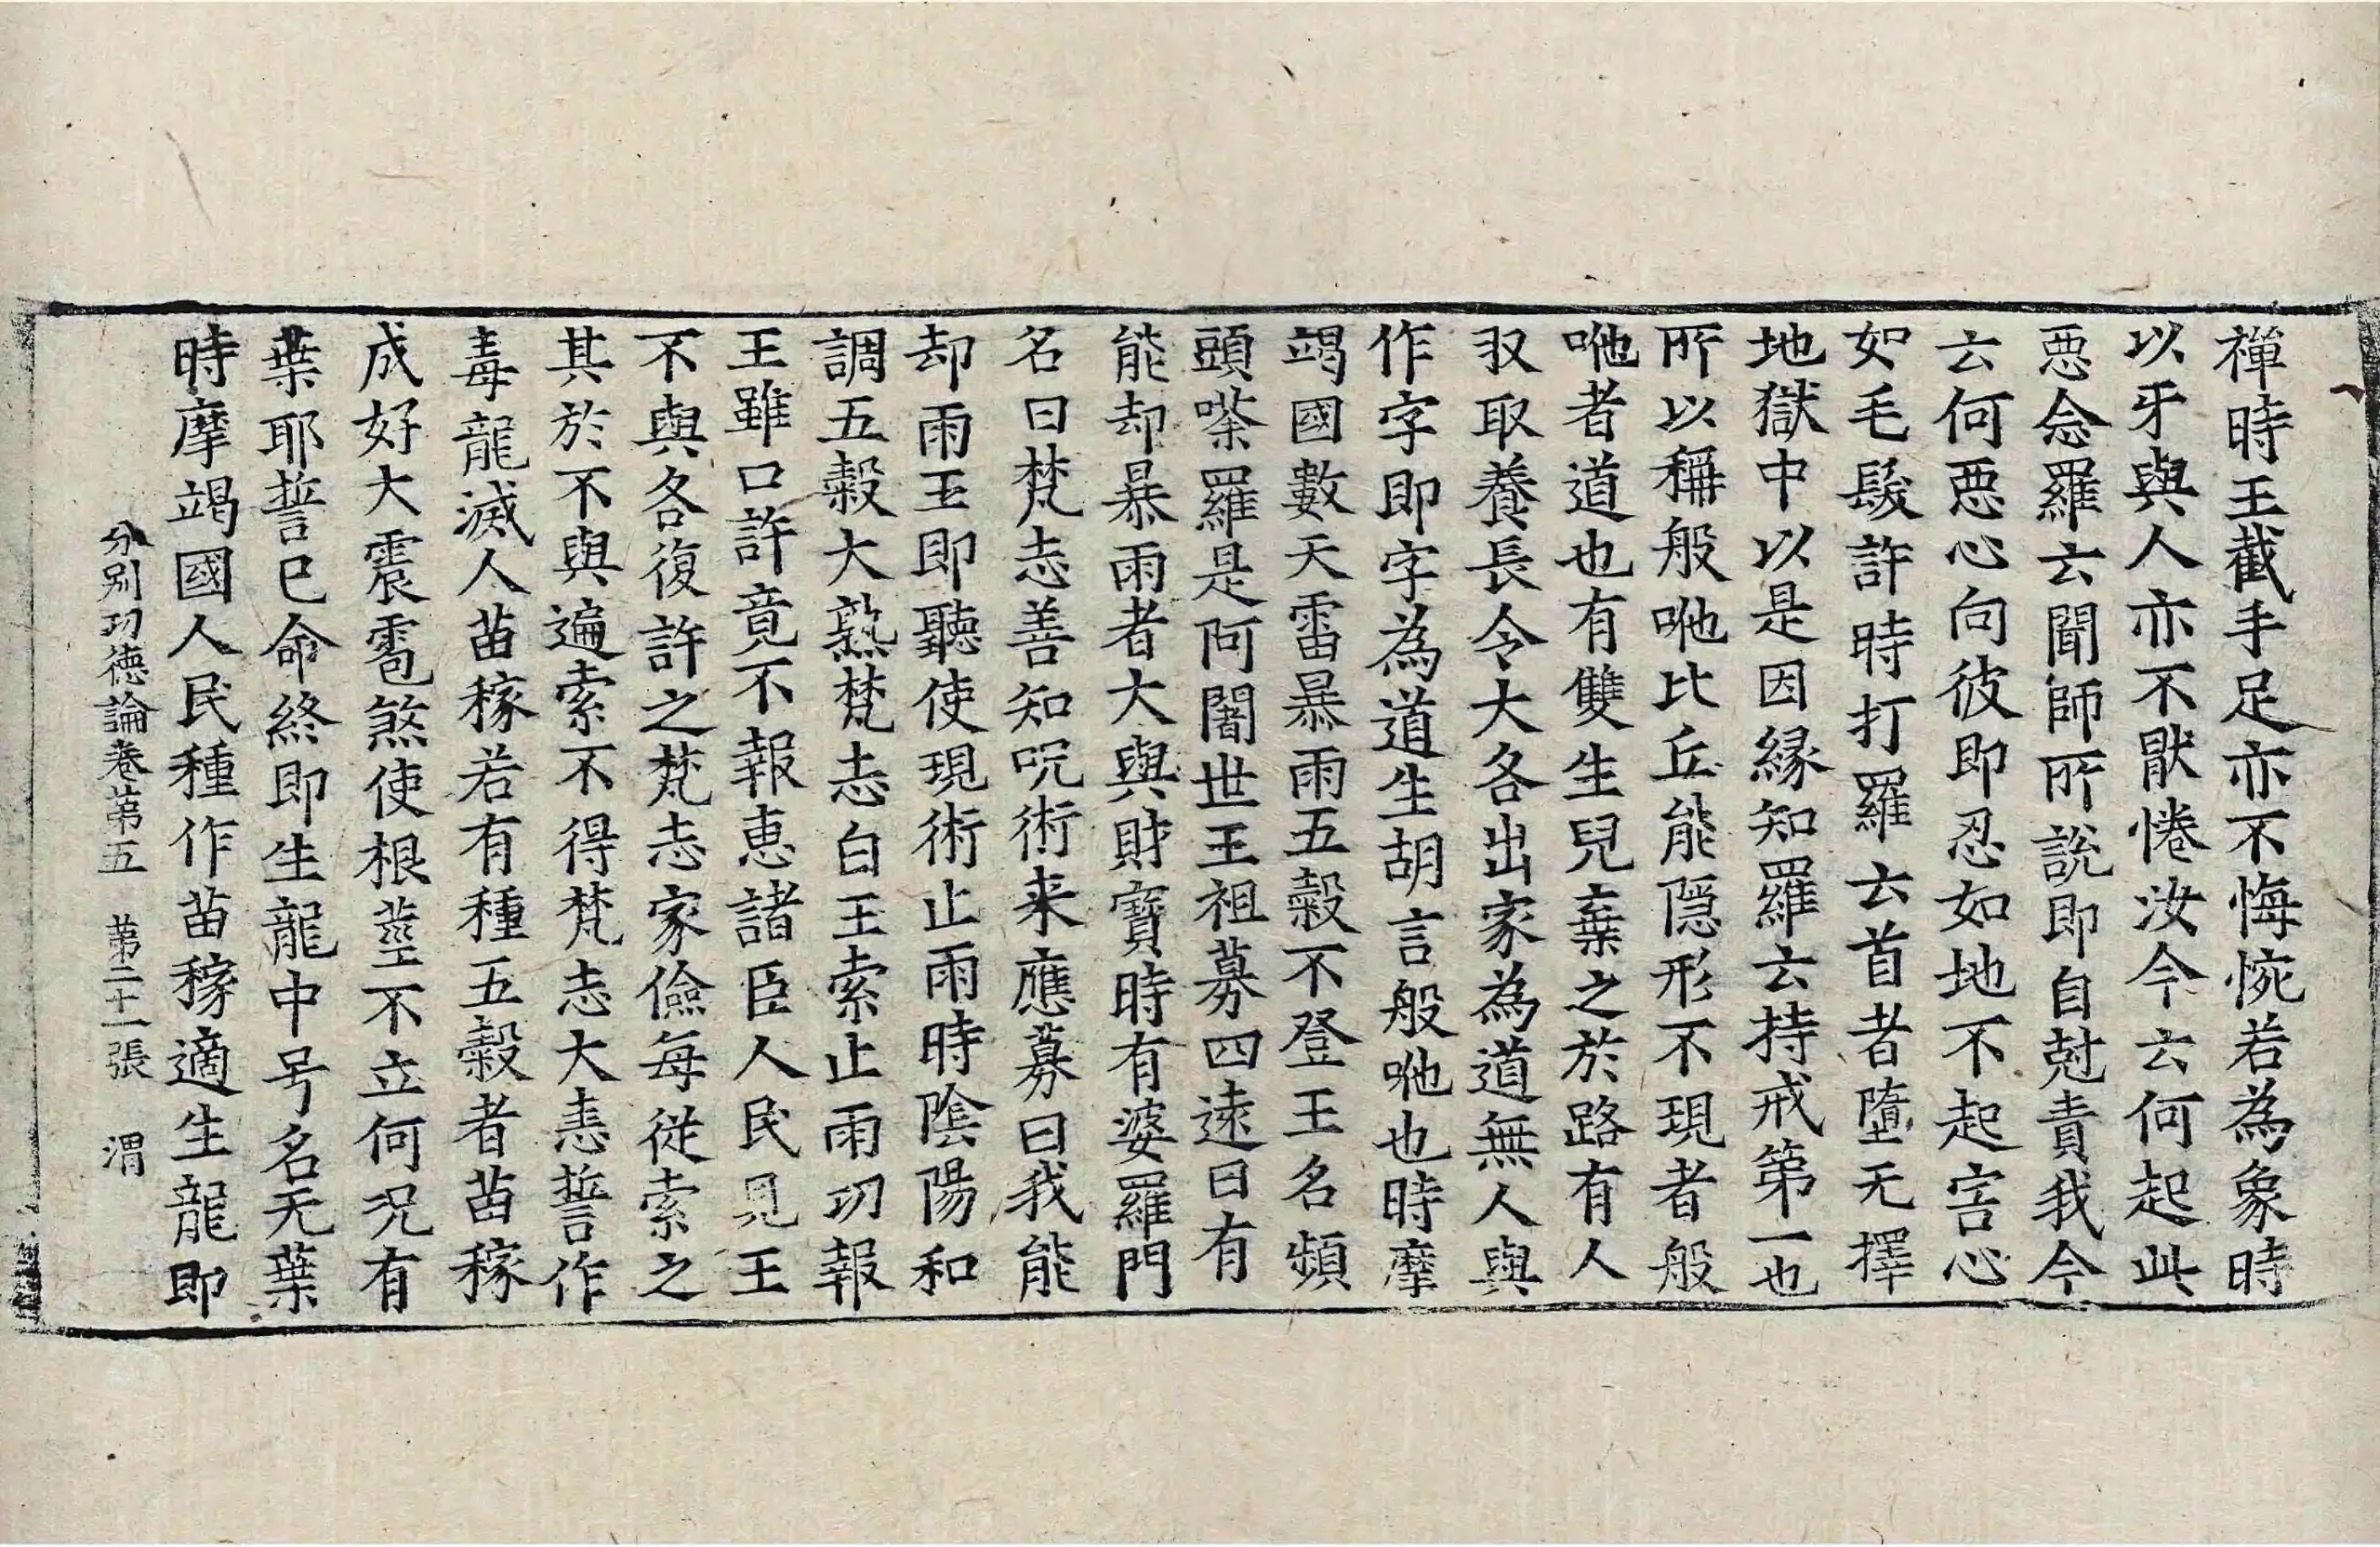 禪時王截手足亦不悔惋若為象時
以牙與人亦不猒惓汝今云何起此
惡念羅云聞師所說即自尅責我今
云何惡心向彼即忍如地不起害心
如毛髮許時打羅云首者墮无擇
地獄中以是因緣知羅云持戒第一也
所以稱般咃比丘能隱形不現者般
咃者道也有雙生兒棄之於路有人
収取養長令大各出家為道無人與
作字即字為道生胡言般咃也時摩
竭國數天雷暴雨五穀不登王名頻
頭㗪羅是阿闍世王祖募四遠曰有
能却暴雨者大與財寶時有婆羅門
名曰梵志善知呪術来應募曰我能
却雨王即聽使現術止雨時陰陽和
調五穀大熟梵志白王索止雨功報
王雖口許竟不報恵諸臣人民見王
不與各復許之梵志家儉每從索之
其於不與遍索不得梵志大恚誓作
毒龍滅人苗稼若有種五穀者苗稼
成好大震雹煞使根莖不立何况有
葉耶誓已命終即生龍中号名无葉
時摩竭國人民種作苗稼適生龍即
分别功德論卷苐五　苐二十一張　渭